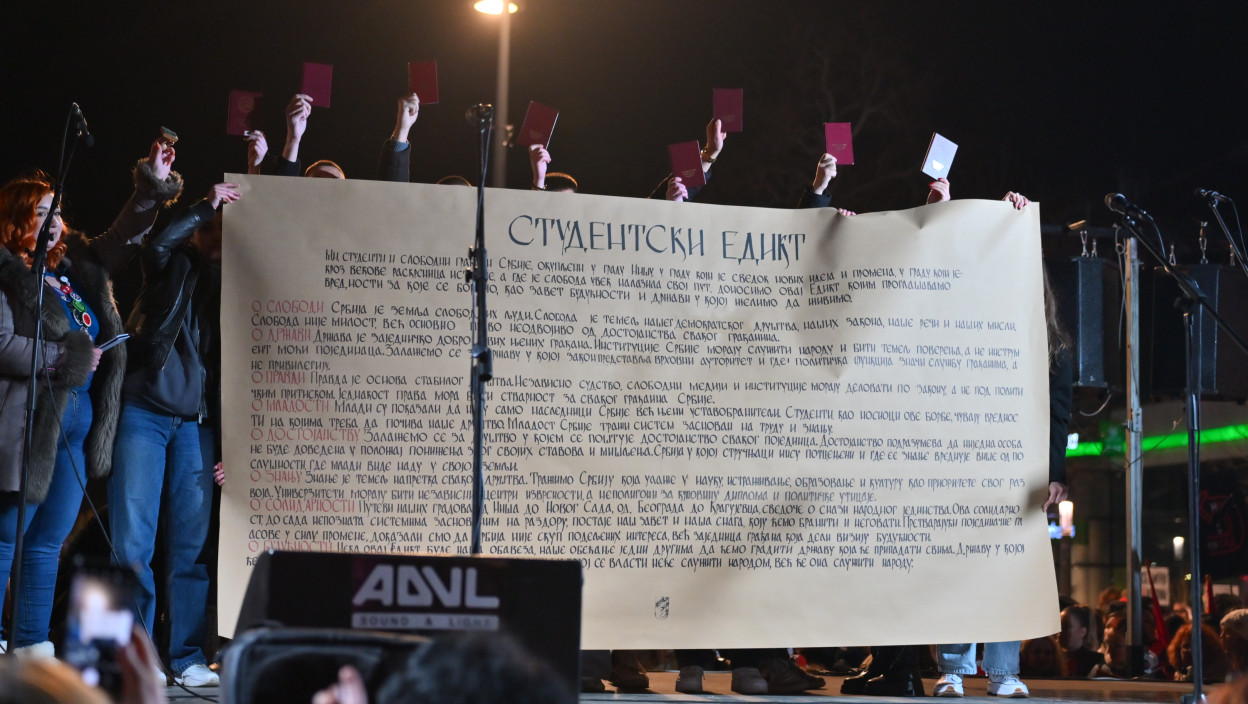 СТУДЕНТСКИ ЕДИКТ
МИ СТУДЕНТИ И СЛОБОДНИ СРБИЈЕ, ОКУПЉЕНИ У ГРАДУ НИШУ, У ГРАДУ КОЈИ ЈЕ СВЕДОК НОВИХ ИДЕЈА И ПРОМЕНА, У ГРАДУ КОЈИ ЈЕ
КРОЗ ВЕКОВЕ РАСКРСНИЦА А ГДЕ ЈЕ СЛОБОДА УВЕК НАЛАЗИЛА СВОЈ ПУТ. ДОНОСИМО ОВАЈ ЕДИКТ КОЈИМ ПРОГЛАШАВАМО
ВРЕДНОСТИ ЗА КОЈЕ СЕ КАО ЗАВЕТ БУДУЋНОСТИ И ДРЖАВИ У КОЈОЈ ЖЕЛИМО ДА ЖИВИМО.
О СЛОБОДИ СРБИЈА ЈЕ ЗЕМЉА СЛОБОДНИХ ЉУДИ. СЛОБОДА ЈЕ ТЕМЕЉ НАШЕГ ДЕМОКРАТСКОГ ДРУШТВА, НАШИХ ЗАКОНА, НАШЕ РЕЧИ И НАШИХ МИСЛИ.
СЛОБОДА НИЈЕ МИЛОСТ, ВЕЋ ОСНОВНО ПРАВО НЕОДВОЈИВО ОД ДОСТОЈАНСТВА СВАКОГ ГРАЂАНИНА.
О ДРЖАВИ ДРЖАВА ЈЕ ЗАЈЕДНИЧКО ДОБРО ЊЕНИХ ГРАЂАНА. ИНСТИТУЦИЈЕ СРБИЈЕ МОРАЈУ СЛУЖИТИ НАРОДУ И БИТИ ТЕМЕЉ ПОВЕРЕЊА, А НЕ ИНСТРУМ
ЕНТ МОЋИ ПОЈЕДИНАЦА. ЗАЛАЖЕМО СЕ ДРЖАВУ У КОЈОЈ ЗАКОН ПРЕДСТАВЉА ВРХОВНИ АУТОРИТЕТ И ГДЕ ПОЛИТИЧКА ФУНКЦИЈА ЗНАЧИ СЛУЖБУ ГРАЂАНИМА, А
НЕ ПРИВИЛЕГИЈУ.
О ПРАВДИ ПРАВДА ЈЕ ОСНОВА СТАБИЛНОГ НЕЗАВИСНО СУДСТВО, СЛОБОДНИ МЕДИЈИ И ИНСТИТУЦИЈЕ МОРАЈУ ДЕЛОВАТИ ПО ЗАКОНУ, А НЕ ПОД ПОЛИТИ
ЧКИМ ПРИТИСКОМ. ЈЕДНАКОСТ ПРАВА МОРА СТВАРНОСТ ЗА СВАКОГ ГРАЂАНИНА СРБИЈЕ.
О МЛАДОСТИ МЛАДИ СУ ПОКАЗАЛИ ДА НИСУ САМО НАСЛЕДНИЦИ СРБИЈЕ ВЕЋ ЊЕНИ УСТАВОБРАНИТЕЉИ. СТУДЕНТИ, КАО НОСИОЦИ ОВЕ БОРБЕ, ЧУВАЈУ ВРЕДНОС
ТИ НА КОЈИМА ТРЕБА ДА ПОЧИВА НАШЕ МЛАДОСТ СРБИЈЕ ТРАЖИ СИСТЕМ ЗАСНОВАН НА ТРУДУ И ЗНАЊУ.
О ДОСТОЈАНСТВУ ЗАЛАЖЕМО СЕ ЗА ДРУШТВО У КОЈЕМ СЕ ПОШТУЈЕ ДОСТОЈАНСТВО СВАКОГ ПОЈЕДИНЦА. ДОСТОЈАНСТВО ПОДРАЗУМЕВА ДА НИЈЕДНА ОСОБА
НЕ БУДЕ ДОВЕДЕНА У ПОЛОЖАЈ ПОНИЖЕЊА СВОЈИХ СТАВОВА И МИШЉЕЊА. СРБИЈА У КОЈОЈ СТРУЧЊАЦИ НИСУ ПОТЦЕЊЕНИ И ГДЕ СЕ ЗНАЊЕ ВРЕДНУЈЕ ВИШЕ ОД ПО
СЛУШНОСТИ, ГДЕ МЛАДИ ВИДЕ НАДУ У СВОЈОЈ ЗЕМЉИ.
О ЗНАЊУ ЗНАЊЕ ЈЕ ТЕМЕЉ НАПРЕТКА СВАКОГ ДРУШТВА. ТРАЖИМО СРБИЈУ КОЈА УЛАЖЕ У НАУКУ, ИСТРАЖИВАЊЕ, ОБРАЗОВАЊЕ И КУЛТУРУ КАО ПРИОРИТЕТЕ СВОГ РАЗ
ВОЈА. УНИВЕРЗИТЕТИ МОРАЈУ БИТИ НЕЗАВИСНИ ЦЕНТРИ ИЗВРСНОСТИ, А НЕ ПОЛИГОНИ ЗА КУПОВИНУ ДИПЛОМА И ПОЛИТИЧКЕ УТИЦАЈЕ.
О СОЛИДАРНОСТИ ПУТЕВИ НАШИХ ГРАДОВА, ОД НИША ДО НОВОГ САДА, ОД БЕОГРАДА ДО КРАГУЈЕВЦА, СВЕДОЧЕ О СНАЗИ НАРОДНОГ ЈЕДИНСТВА. ОВА СОЛИДАРНО
СТ, ДО САДА НЕПОЗНАТА СИСТЕМИМА ЗАСНОВАНИМ НА РАЗДОРУ, ПОСТАЈЕ НАШ ЗАВЕТ И НАША СНАГА КОЈУ ЋЕМО БРАНИТИ И НЕГОВАТИ. ПРЕТВАРАЈУЋИ ПОЈЕДИНАЧНЕ ГЛ
АСОВЕ У СИЛУ ПРОМЕНЕ, ДОКАЗАЛИ СМО ДА СРБИЈА НИЈЕ СКУП ПОДЕЉЕНИХ ИНТЕРЕСА, ВЕЋ ЗАЈЕДНИЦА ГРАЂАНА КОЈА ДЕЛИ ВИЗИЈУ БУДУЋНОСТИ.
О БУДУЋНОСТИ НЕКА ОВАЈ ЕДИКТ БУДЕ НАША ОБАВЕЗА, НАШЕ ОБЕЋАЊЕ ЈЕДНИ ДРУГИМА ДА ЋЕМО ГРАДИТИ ДРЖАВУ КОЈА ЋЕ ПРИПАДАТИ СВИМА. ДРЖАВУ У КОЈОЈ
СЕ ВЛАСТИ НЕЋЕ СЛУЖИТИ НАРОДОМ, ВЕЋ ЋЕ ОНА СЛУЖИТИ НАРОДУ.
ADVL
SOUND & LIGHT